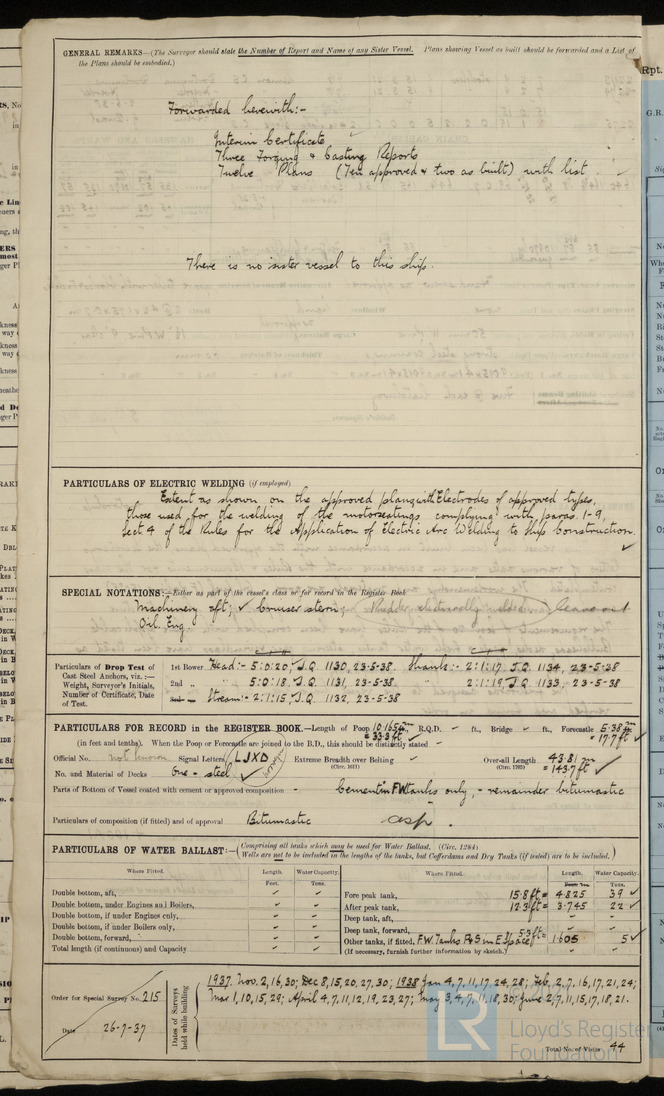 GENERAL REMARKS—(The Surveyor should state the Number of Report and Name of any Sister Vessel. Plans showing Vessel as built should be forwarded and a List of
the Plans should be embodied.)
Forwarded herewith:-
Interim Certificate
Three Forging & Casting Reports
Twelve Plans (Ten approved & two as built) with list
There is no sister vessel to this ship.
PARTICULARS OF ELECTRIC WELDING (if employed)
Extent as shown on the approved plans with Electrodes of approved types,
those used for the welding of the motorseatings complying with paras. 1-9,
Sect 4 of the Rules for the Application of Electric Arc Welding to Ship Construction.
SPECIAL NOTATIONS:—Either as part of the vessel's class or for record in the Register Book
Machinery aft; ✓ Cruiser stern; Rudder electrically welded leave out
Oil. Eng.
Particulars of Drop Test of Cast Steel Anchors, viz.:— Weight, Surveyor's Initials, Number of Certificate, Date of Test.
1st Bower Head:- 5:0:20, J.Q. 1130, 23-5-38 Shank:- 2:1:17 J.Q. 1134, 23-5-38
2nd „ 5:0:18, J.Q. 1131, 23-5-38 2:1:19, J.Q. 1133, 23-5-38
3rd Stream:- 2:1:15, J.Q. 1132, 23-5-38
PARTICULARS FOR RECORD in the REGISTER BOOK.—Length of Poop 10.165m = 33.3 ft ✓, R.Q.D. - ft., Bridge - ft., Forecastle 5.38m = 17.7 ft ✓
(in feet and tenths). When the Poop or Forecastle are joined to the B.D., this should be distinctly stated -
Official No. not known Signal Letters LJXD Extreme Breadth over Belting - (Circ. 1611) Over-all Length 43.81 m = 143.7 ft ✓ (Circ. 1703)
No. and Material of Decks One - steel ✓
Parts of Bottom of Vessel coated with cement or approved composition - Cement in F.W. tanks only, - remainder bitumastic
Particulars of composition (if fitted) and of approval Bitumastic
PARTICULARS OF WATER BALLAST:—(Comprising all tanks which may be used for Water Ballast. (Circ. 1284)
Wells are not to be included in the lengths of the tanks, but Cofferdams and Dry Tanks (if tested) are to be included.)
Where Fitted. Length. Water Capacity. Where Fitted. Length. Water Capacity.
Feet. Tons. Tons.
Double bottom, aft, Fore peak tank, 15.8 ft = 4.825 39 ✓
Double bottom, under Engines and Boilers, After peak tank, 12.3 ft = 3.745 22 ✓
Double bottom, if under Engines only, Deep tank, aft,
Double bottom, if under Boilers only, Deep tank, forward,
Double bottom, forward, Other tanks, if fitted, F.W. Tanks P&S in E Space 5.3 ft = 1.605 5 ✓
Total length (if continuous) and Capacity (If necessary, furnish further information by sketch.)
Order for Special Survey No. 215
Date 26-7-37
Dates of Surveys held while building
1937. Nov. 2, 16, 30; Dec 8, 15, 20, 27, 30; 1938 Jan 4, 7, 11, 17, 24, 28; Feb. 2, 7, 16, 17, 21, 24;
Mar 1, 10, 15, 29; April 4, 7, 11, 12, 19, 23, 27; May 3, 4, 7, 11, 18, 30; June 2, 7, 11, 15, 17, 18, 21.
Total No. of Visits 44
LR
Lloyd's Register
Foundation
Rpt.